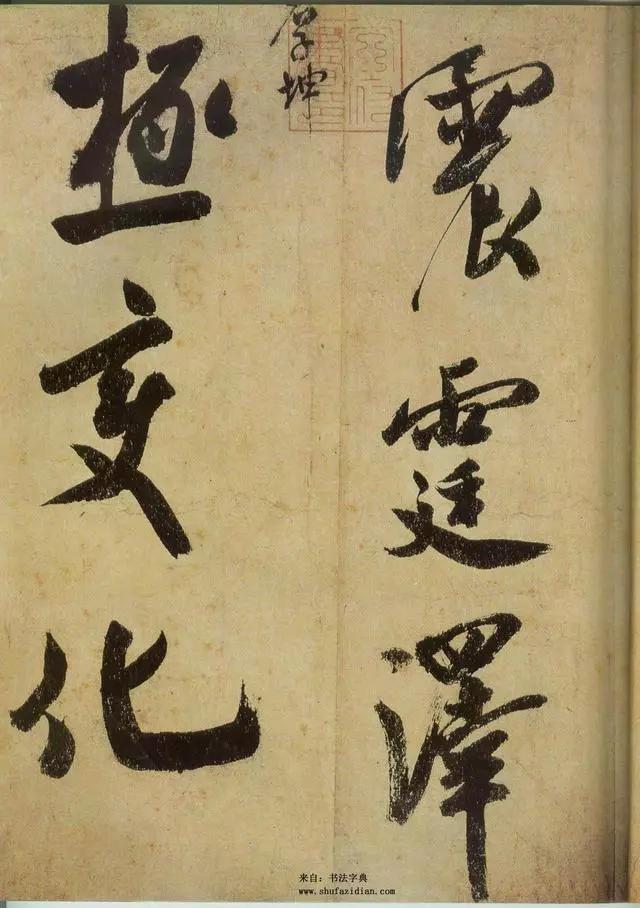 震霆澤
厚坤
極變化
来自：书法字典
www.shufazidian.com